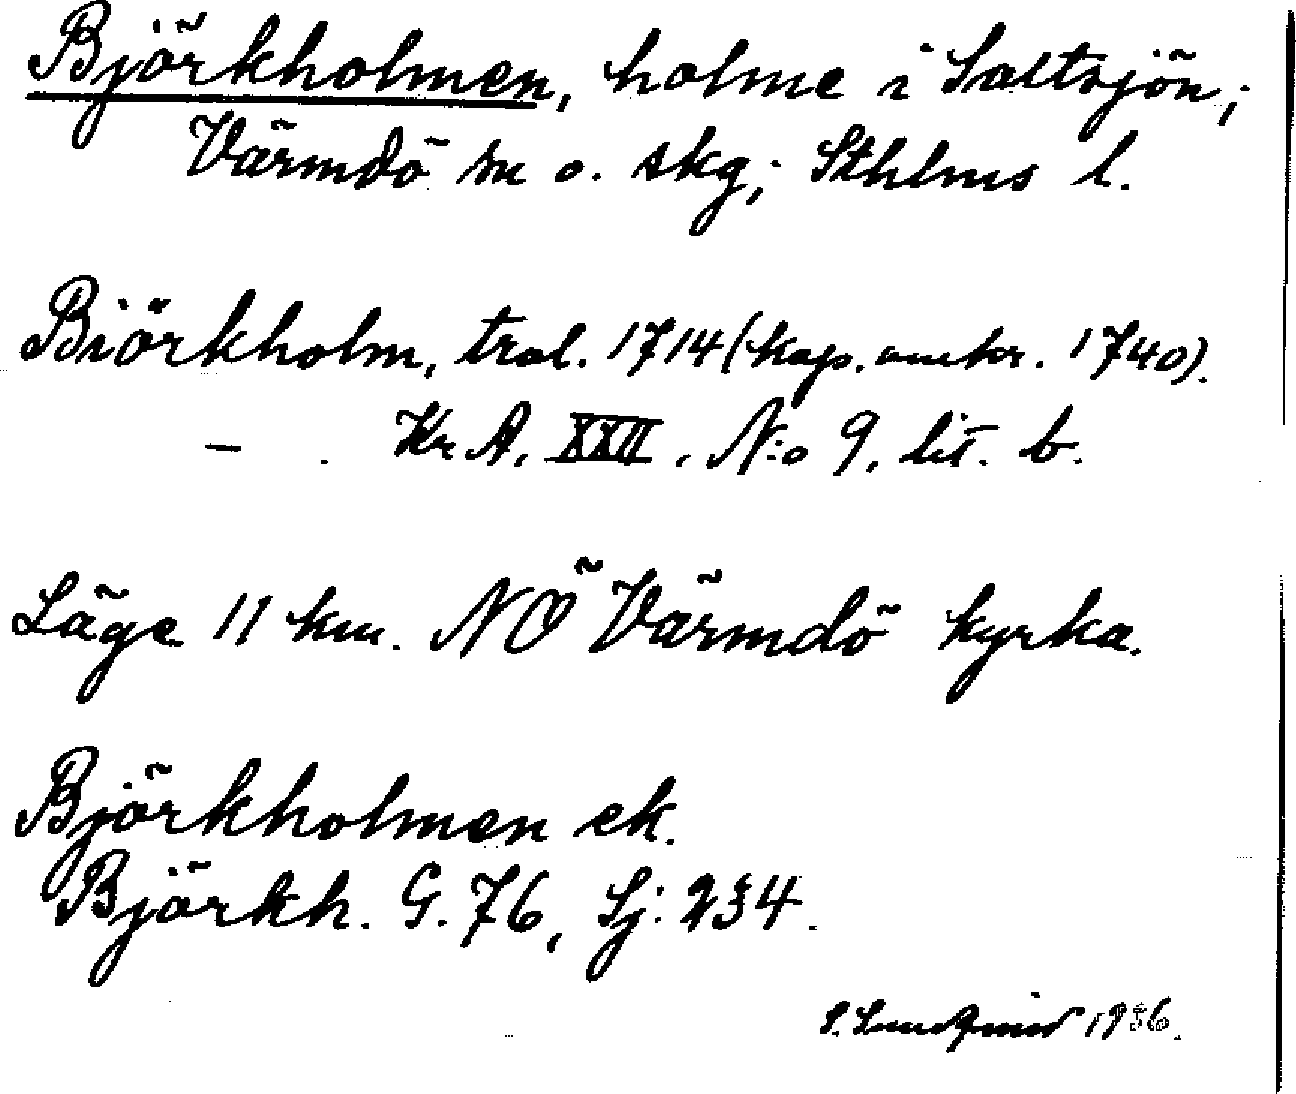 Björkholmen, holme i Saltsjön;
Värmdö sn o. skg; Sthlms l.
Biörkholm, trol. 1714 (kop. omkr. 1740).
— . Kr A. XXII. N:o 9, lit. b.
Läge 11 km. NÖ Värmdö kyrka.
Björkholmen ek.
Björkh. G. 76, Sj: 234.
S. Lundqvist 1936.